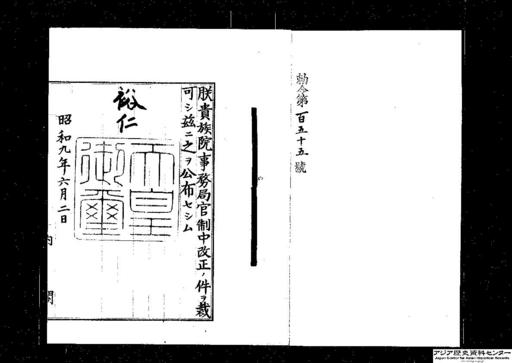 勅令第百五十五號
朕貴族院事務局官制中改正ノ件ヲ裁
可シ茲ニ之ヲ公布セシム
裕仁
天皇御璽
昭和九年六月二日
内閣
アジア歴史資料センター
Japan Center for Asian Historical Records